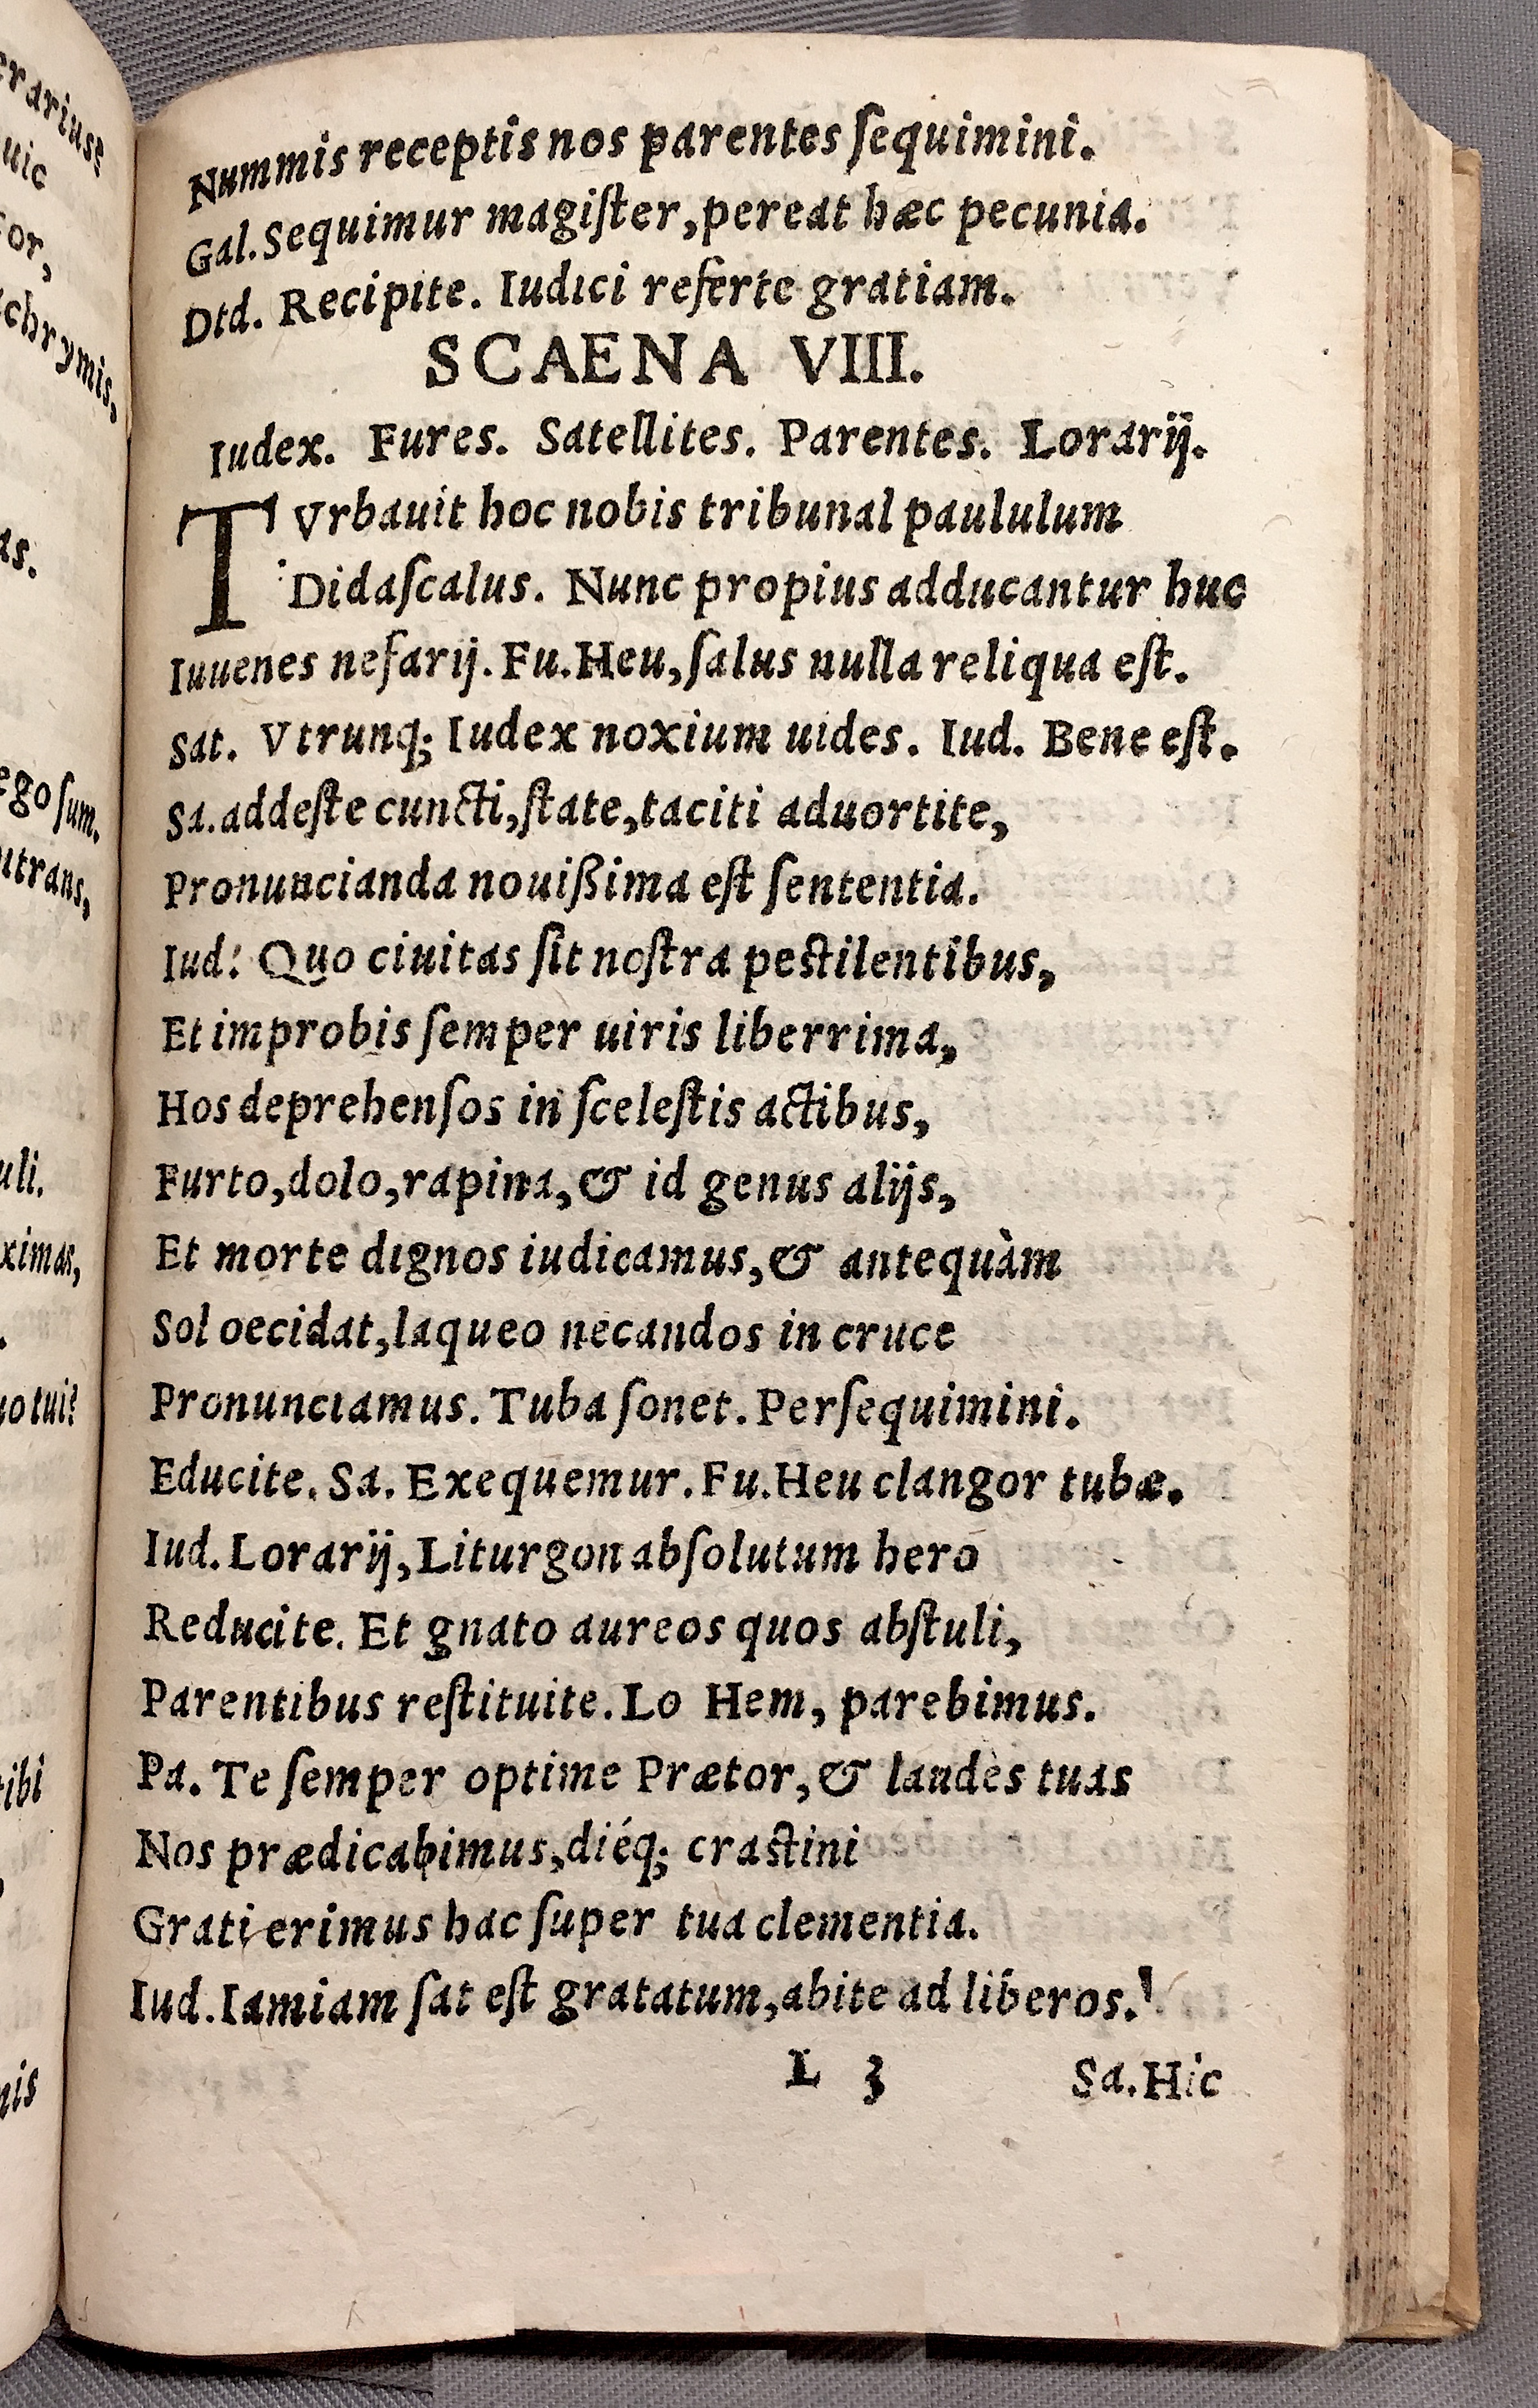 Nummis receptis nos parentes ſequimini.
Gal. Sequimur magiſter, pereat hæc pecunia.
Did. Recipite. Iudici referte gratiam.
SCAENA VIII.
Iudex. Fures. Satellites. Parentes. Lorarij.
TVrbauit hoc nobis tribunal paululum
Didaſcalus. Nunc propius adducantur huc
Iuuenes nefarij. Fu. Heu, ſalus nulla reliqua eſt.
Sat. Vtrunq; Iudex noxium uides. Iud. Bene eſt.
Sa. addeſte cuncti, ſtate, taciti aduortite,
Pronuncianda nouißima eſt ſententia.
Iud: Quo ciuitas ſit noſtra peſtilentibus,
Et improbis ſemper uiris liberrima,
Hos deprehenſos in ſceleſtis actibus,
Furto, dolo, rapina, & id genus alijs,
Et morte dignos iudicamus, & antequàm
Sol oecidat, laqueo necandos in cruce
Pronunciamus. Tuba ſonet. Perſequimini.
Educite. Sa. Exequemur. Fu. Heu clangor tubæ.
Iud. Lorarij, Liturgon abſolutum hero
Reducite. Et gnato aureos quos abſtuli,
Parentibus reſtituite. Lo Hem, parebimus.
Pa. Te ſemper optime Prætor, & laudes tuas
Nos prædicabimus, diéq; craſtini
Grati erimus hac ſuper tua clementia.
Iud. Iamiam ſat eſt gratatum, abite ad liberos.
L 3 Sa. Hic
uic
as.
ego ſum.
uli.
ximas,
tibi
nis